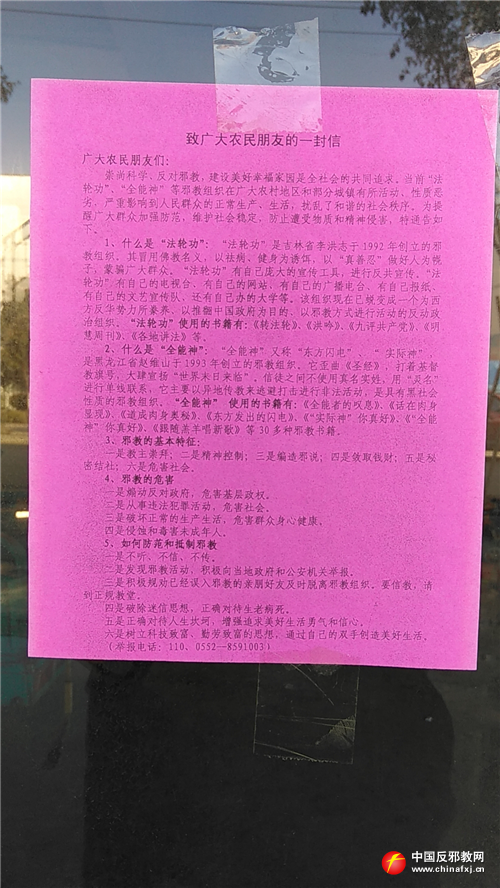 致广大农民朋友的一封信
广大农民朋友们：
崇尚科学、反对邪教，建设美好幸福家园是全社会的共同追求。当前“法
轮功”、“全能神”等邪教组织在广大农村地区和部分城镇有所活动，性质恶
劣，严重影响到人民群众的正常生产、生活，扰乱了和谐的社会秩序。为提
醒广大群众加强防范，维护社会稳定，防止遭受物质和精神侵害，特通告如
下。
1、什么是“法轮功”：“法轮功”是吉林省李洪志于1992年创立的邪
教组织。其冒用佛教名义，以祛病、健身为诱饵，以“真善忍”做好人为幌
子，蒙骗广大群众。“法轮功”有自己庞大的宣传工具，进行反共宣传。“法
轮功”有自己的电视台、有自己的网站、有自己的广播电台、有自己报纸、
有自己的文艺宣传队、还有自己办的大学等。该组织现在已蜕变成一个为西
方反华势力所豢养、以推翻中国政府为目的、以邪教方式进行活动的反动政
治组织。“法轮功”使用的书籍有：《转法轮》、《洪吟》、《九评共产党》、《明
慧周刊》、《各地讲法》等。
2、什么是“全能神”：“全能神”又称“东方闪电”、“实际神”，
是黑龙江省赵维山于1993年创立的邪教组织。它歪曲《圣经》，打着基督
教旗号，大肆宣扬“世界末日来临”。信徒之间不使用真名实姓，用“灵名”
进行单线联系，它主要以异地传教来逃避打击进行非法活动，是具有黑社会
性质的邪教组织。“全能神”使用的书籍有：《全能者的叹息》、《话在肉身
显现》、《道成肉身奥秘》、《东方发出的闪电》、《“实际神”你真好》、《“全能
神”你真好》、《跟随羔羊唱新歌》等30多种邪教书籍。
3、邪教的基本特征：
一是教主崇拜；二是精神控制；三是编造邪说；四是敛取钱财；五是秘
密结社；六是危害社会。
4、邪教的危害
一是煽动反对政府，危害基层政权。
二是从事违法犯罪活动，危害社会。
三是破坏正常的生产生活，危害群众身心健康。
四是侵蚀和毒害未成年人。
5、如何防范和抵制邪教
一是不听、不信、不传。
二是发现邪教活动，积极向当地政府和公安机关举报。
三是积极规劝已经误入邪教的亲朋好友及时脱离邪教组织。要信教，请
到正规教堂。
四是破除迷信思想，正确对待生老病死。
五是正确对待人生坎坷，增强追求美好生活勇气和信心。
六是树立科技致富、勤劳致富的思想，通过自己的双手创造美好生活。
（举报电话：110、0552—8591003）
中国反邪教网
www.chinafxj.cn